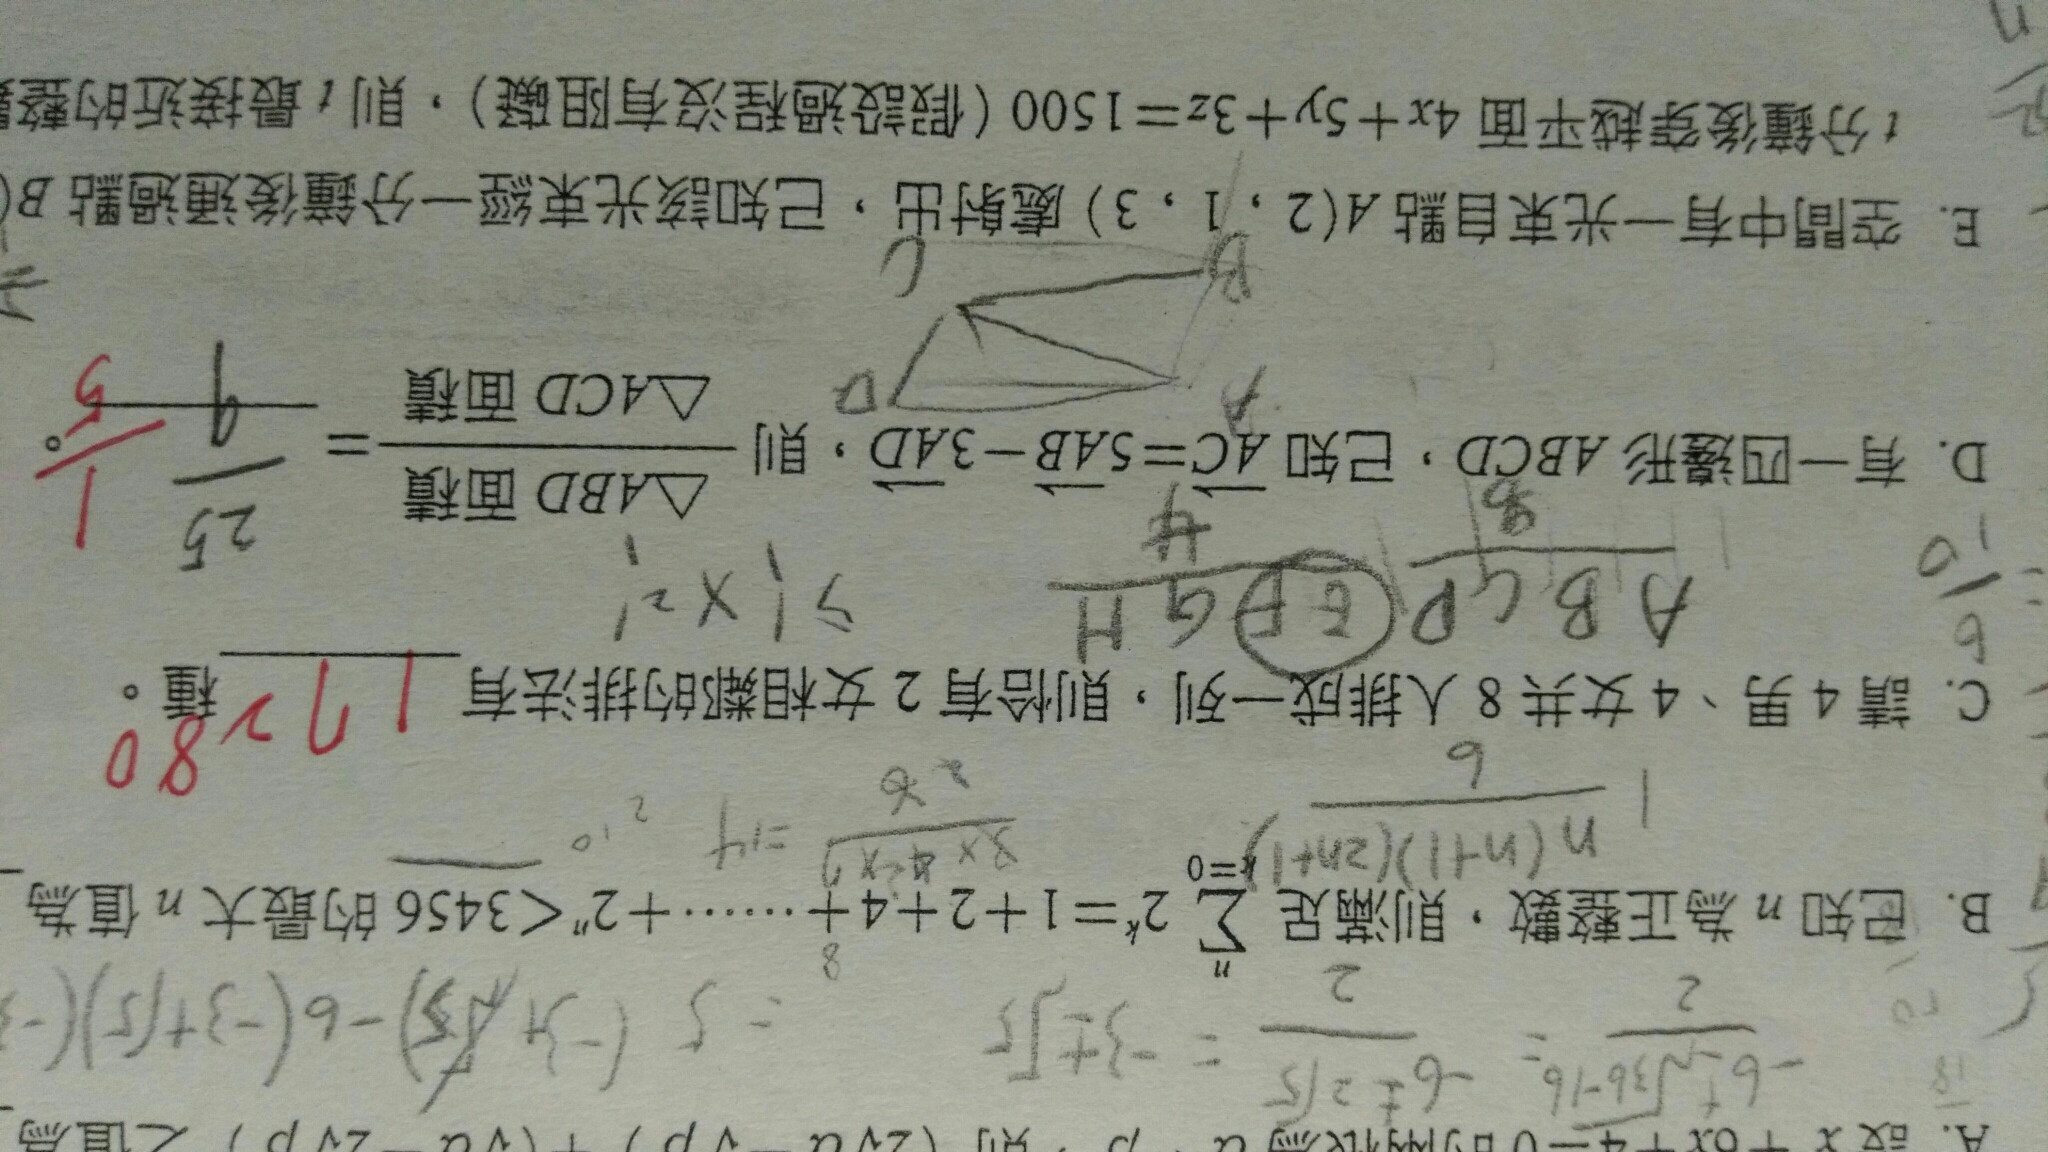 A. 設 x²+6x+4=0 的兩根為 α、β，則
之值為
-6±√36-16 / 2 = -6±2√5 / 2 = -3±√5
= 5(-3+√5)-6(-3+√5)(-3
B. 已知 n 為正整數，則滿足 Σ(k=0 到 n) 2ᵏ=1+2+4+……+2ⁿ<3456 的最大 n 值為
8
n(n+1)(2n+1) / 6
=14
2¹⁰
C. 請 4 男、4 女共 8 人排成一列，則恰有 2 女相鄰的排法有 17280 種。
A B C D E F G H
8
4
D. 有一四邊形 ABCD，已知 AC=5AB-3AD，則 △ABD 面積 / △ACD 面積 = 25/9 1/5 。
A
B
C
D
E. 空間中有一光束自點 A(2，1，3) 處射出，已知該光束經一分鐘後通過點 B(
t 分鐘後穿越平面 4x+5y+3z=1500 (假設過程沒有阻礙)，則 t 最接近的整數